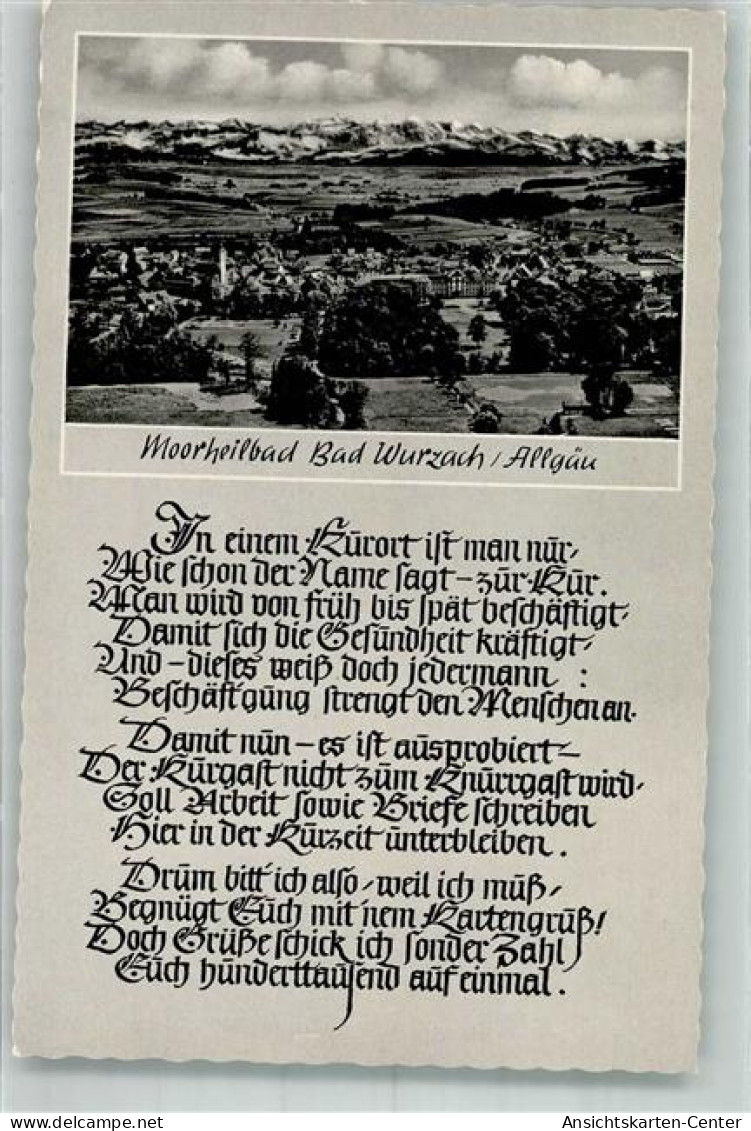 Moorheilbad Bad Wurzach / Allgäu
In einem Kurort ist man nur,
Wie schon der Name sagt – zur Kur.
Man wird von früh bis spät beschäftigt,
Damit sich die Gesundheit kräftigt,
Und – dieses weiß doch jedermann :
Beschäft'gung strengt den Menschen an.
Damit nun – es ist ausprobiert –
Der Kurgast nicht zum Knurrgast wird,
Soll Arbeit sowie Briefe schreiben
Hier in der Kurzeit unterbleiben.
Drum bitt' ich also, weil ich muß,
Begnügt Euch mit 'nem Kartengruß!
Doch Grüße schick ich sonder Zahl
Euch hunderttausend auf einmal.
delcampe.net
Ansichtskarten-Center